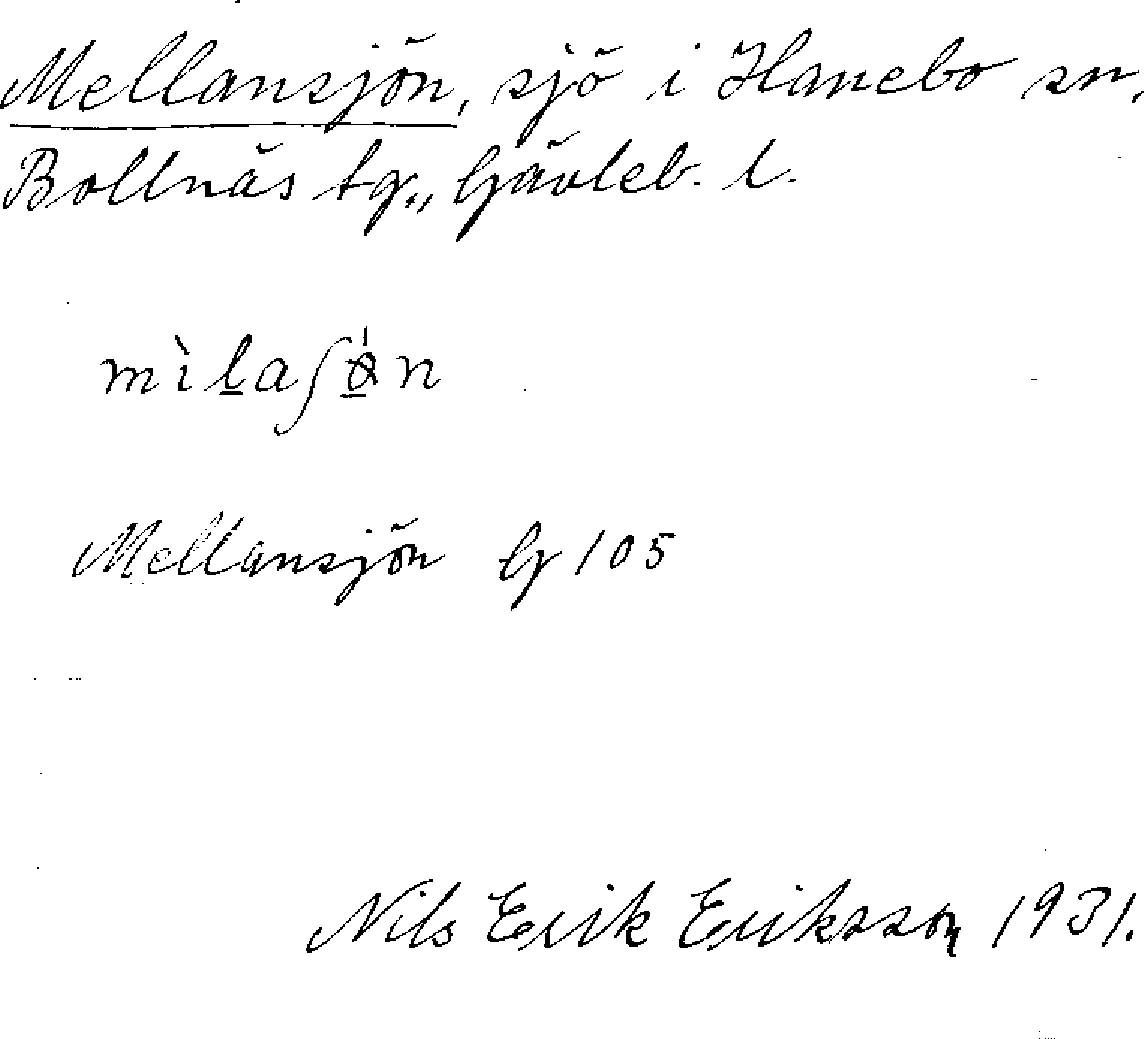 Mellansjön, sjö i Hanebo sn,
Bollnäs tg., Gävleb. l.
mìlaʃø̀n
Mellansjön G 105
Nils Erik Eriksson 1931.